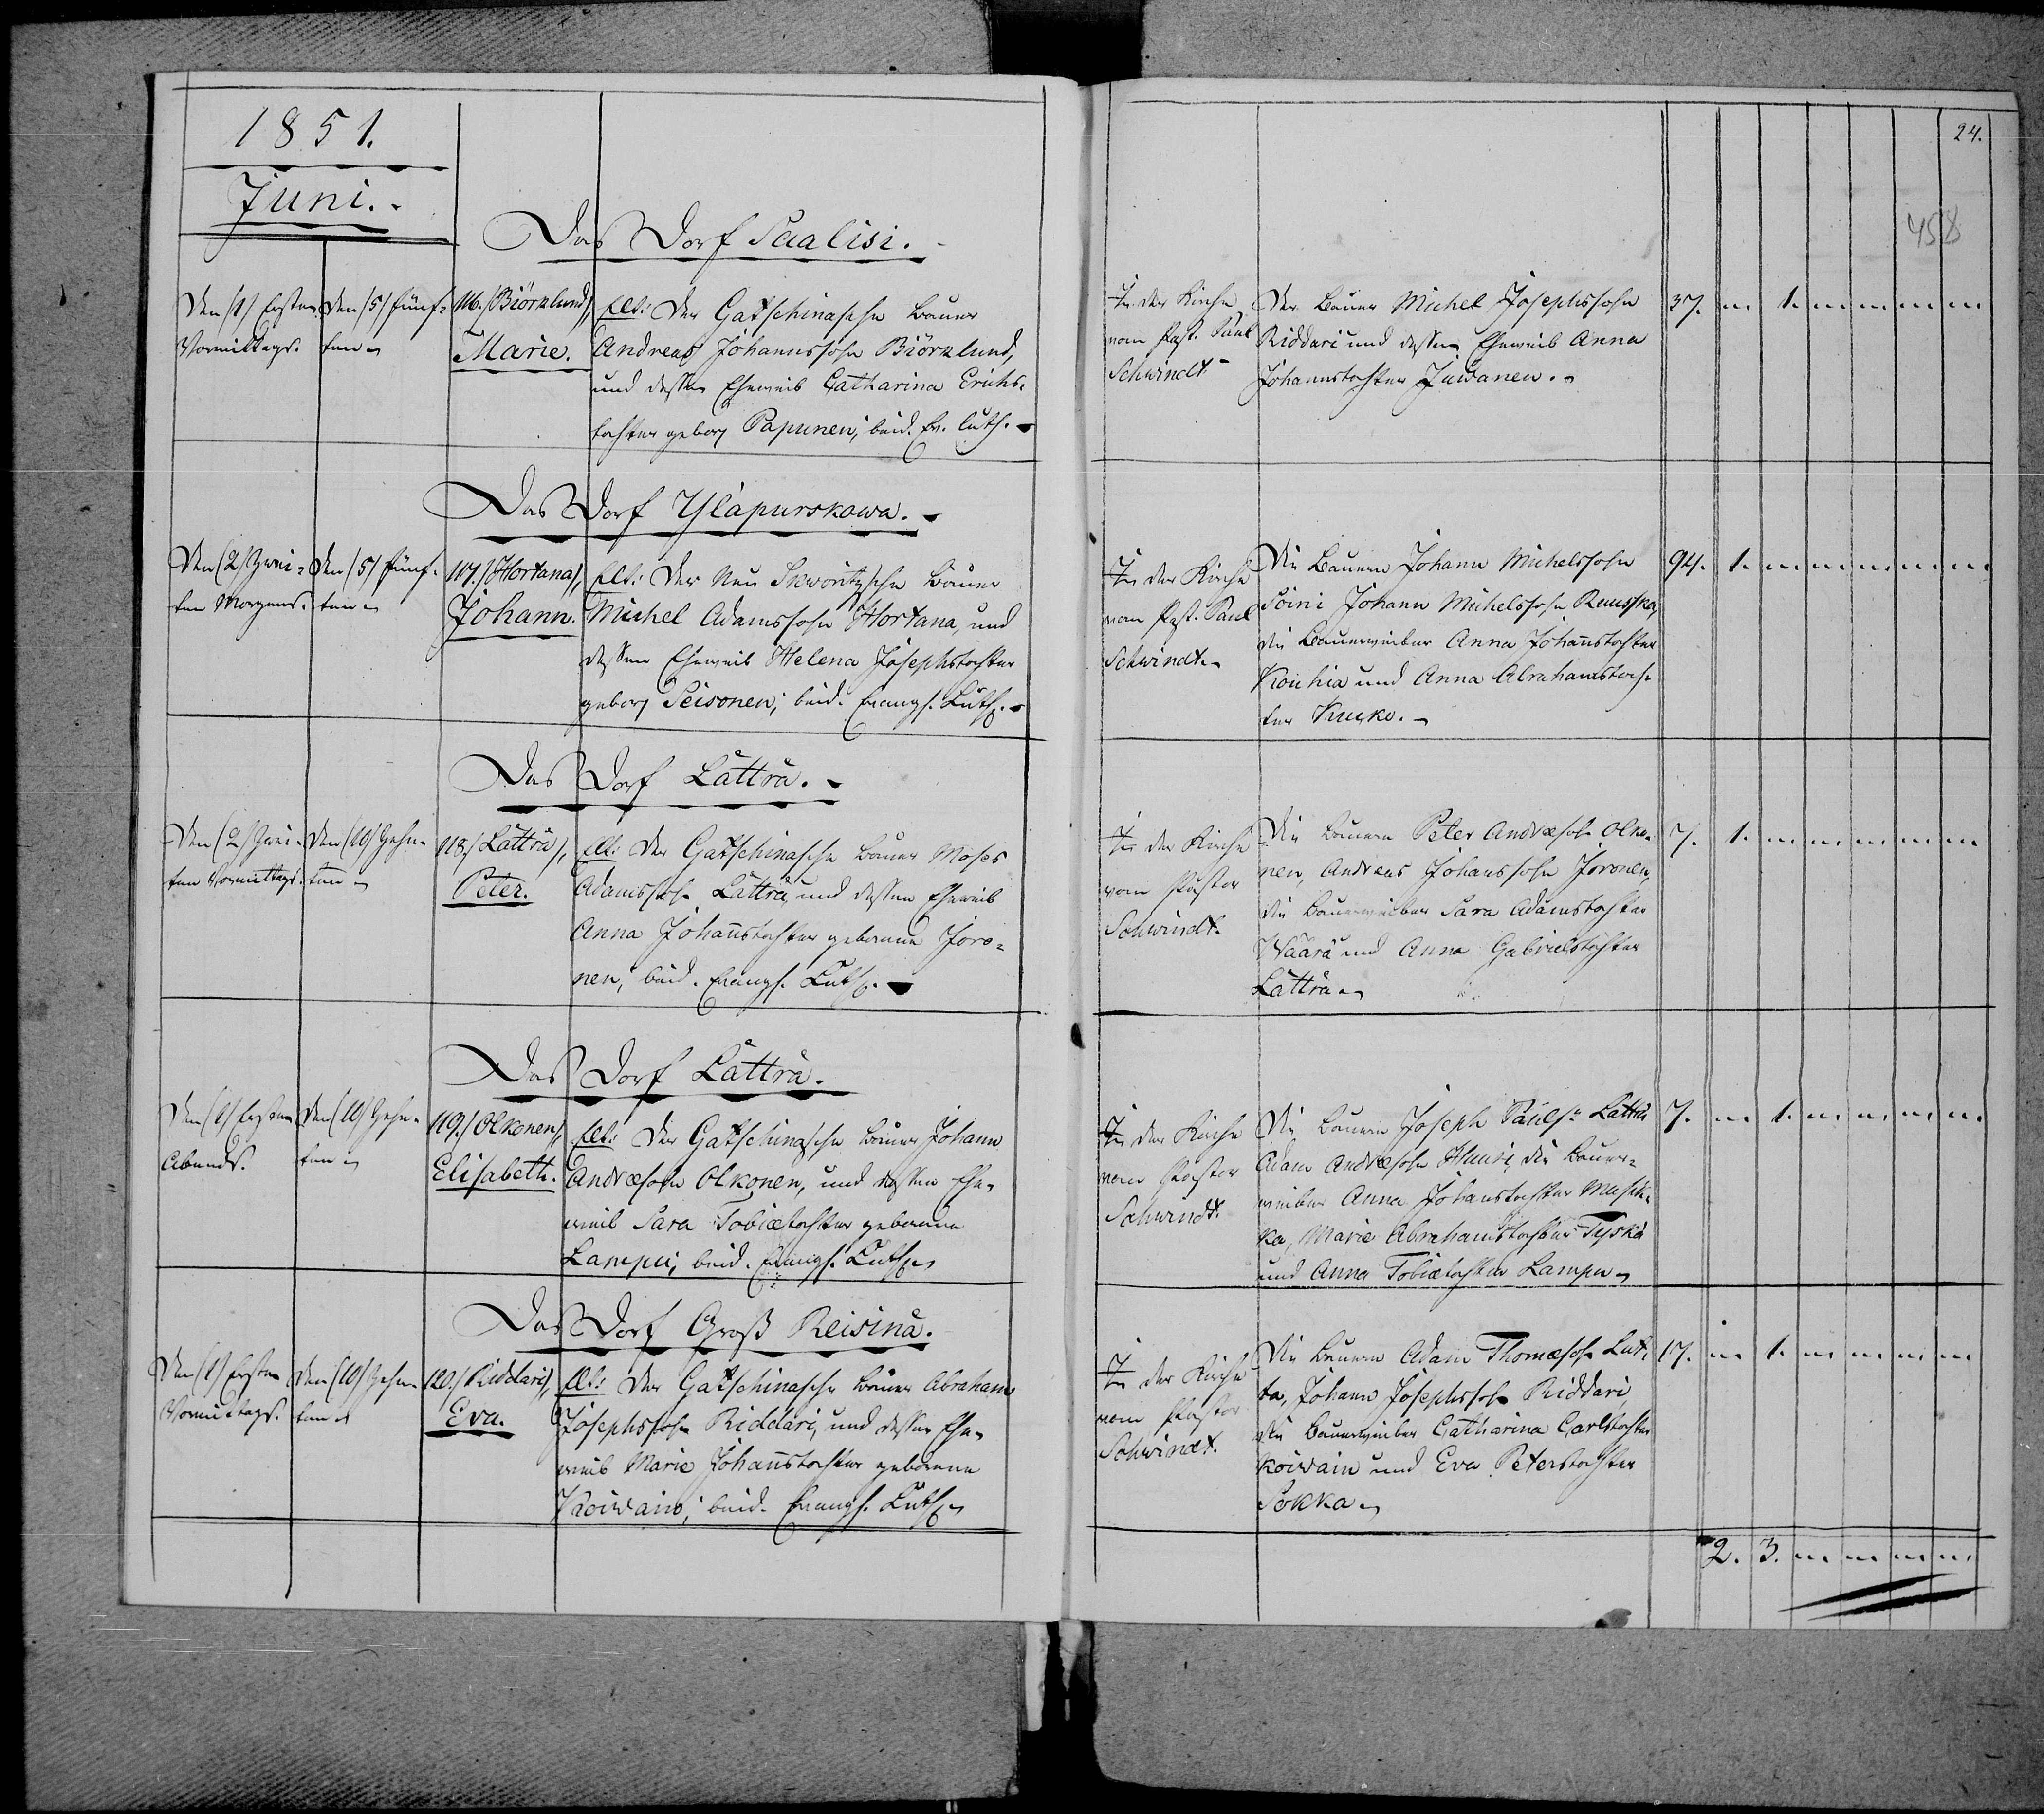 1851.
Juni.
Das Dorf Sualisi.
Den /1/ Ersten Vormittags.
Den /5/ fünf-
ten
116./Biörklund/,
Marie.
Elt: Der Gatschinasche Bauer
Andreas Johannssohn Biörklund,
und dessen Eheweib Catharina Erichs-
tochter gebor. Papunen; beid. Ev. Luth.
Das Dorf Yläpurskowa.
Den /2/ Zwei-
ten Morgens.
Den /5/ fünf-
ten
117./Hortana/,
Johann.
Elt: Der Neu Skworitzsche Bauer
Michel Adamssohn Hortana, und
dessen Eheweib Helena Josephstochter
gebor. Seisonen; beid. Evangl. Luth.
Das Dorf Lätträ.
Den /2/ Zwei-
ten Vormittags.
Den /10/ Zehn-
ten
118./Lätträ/,
Peter.
Elt: Der Gatschinasche Bauer Moses
Adamssohn Lätträ, und dessen Eheweib
Anna Johannstochter geborene Joro-
nen; beid. Evangl. Luth.
Das Dorf Lätträ.
Den /1/ Ersten
Abends.
Den /10/ Zehn-
ten
119./Olkonen/,
Elisabeth.
Elt: Der Gatschinasche Bauer Johann
Andreæsohn Olkonen, und dessen Ehe-
weib Sara Tobiætochter geborene
Lampu; beid. Evangl. Luth.
Das Dorf Groß Reisinä.
Den /1/ Ersten
Vormittags.
Den /10/ Zehn-
ten
120./Riddari/,
Eva.
Elt: Der Gatschinasche Bauer Abraham
Josephssohn Riddari, und dessen Ehe-
weib Marie Johannstochter geborene
Koiwain; beid. Evangl. Luth.
24.
458
In der Kirche
vom Past. Paul
Schwindt
Der Bauer Michel Josephssohn
Riddari und dessen Eheweib Anna
Johannstochter Juwanen.
37. 1.
In der Kirche
vom Past. Paul
Schwindt.
Die Bauern Johann Michelssohn
Soini Johann Michelssohn Ruuska,
die Bauerweiber Anna Johannstochter
Kouhia und Anna Abrahamstoch-
ter Kucko.
94. 1.
In der Kirche
vom Pastor
Schwindt.
Die Bauern Peter Andreæsohn Olko-
nen, Andreas Johanssohn Joronen,
die Bauerweiber Sara Adamstochter
Wäärä und Anna Gabrielstochter
Lätträ
7. 1.
In der Kirche
vom Pastor
Schwindt.
Die Bauern Joseph Pauls: Lätträ
Adam Andreæsohn Huuri, die Bauer-
weiber Anna Johanstochter Musik-
ka, Marie Abrahamstochter Tyskä
und Anna Tobiætochter Lampu
7. 1.
In der Kirche
vom Pastor
Schwindt.
Die Bauern Adam Thomæsohn Lut-
ta, Johann Josephssohn Riddari,
die Bauerweiber Catharina Carlstochter
Koiwain und Eva Peterstochter
Sokka
17. 1.
2. 3.